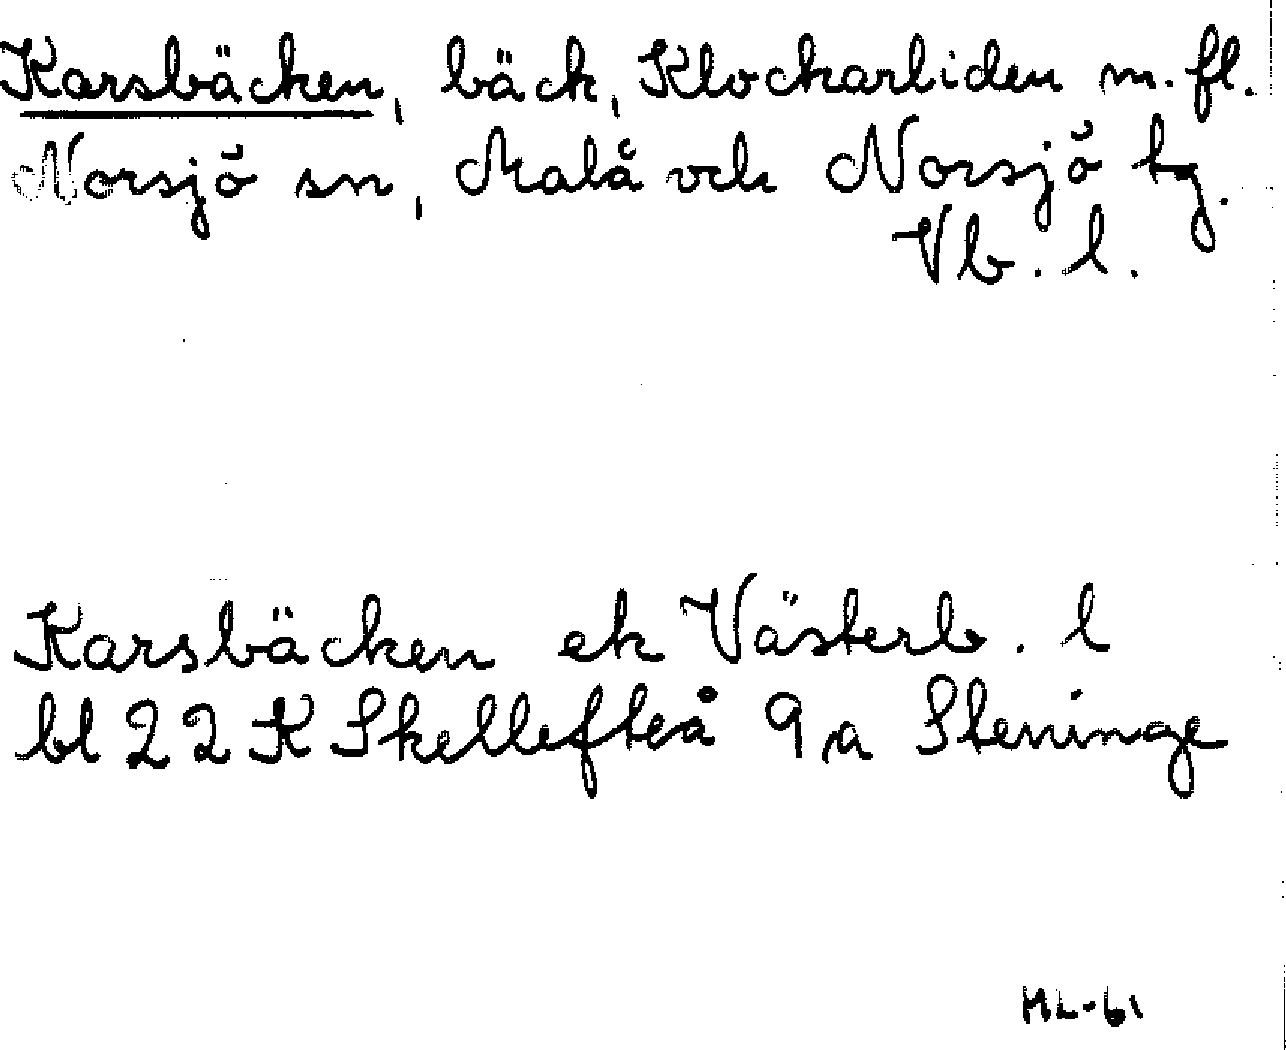 Karsbäcken, bäck, Klockarliden m. fl.
Norsjö sn, Malå och Norsjö tg.
Vb. l.
Karsbäcken ek Västerb. l
bl 22 K Skellefteå 9 a Steninge
ML-61